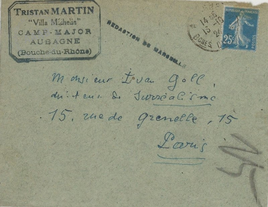 TRISTAN MARTIN
"Villa Michette"
CAMP-MAJOR
AUBAGNE
(Bouches-du-Rhône)
REDACTION DU
25
Monsieur Ivan Goll
directeur de Surréalisme
15, rue de Grenelle, 15
Paris
15